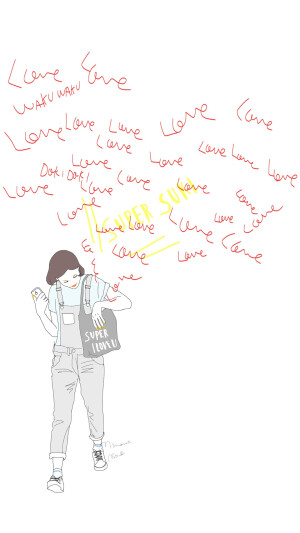 Love Love
WAKU WAKU
Love Love Love Love Love
Love
Love Love Love Love Love
DOKI DOKI
Love Love Love Love
Love Love
SUPER SUN
Love Love Love Love
Love Love Love
Love
SUPER
LOVELY